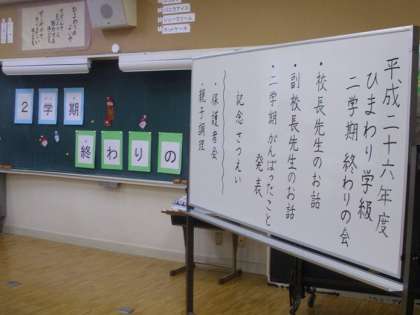 平成二十六年度
ひまわり学級
二学期 終わりの会
・校長先生のお話
・副校長先生のお話
・二学期 がんばったこと
発表
記念さつえい
・保護者会
・親子調理
2学期
終わりの